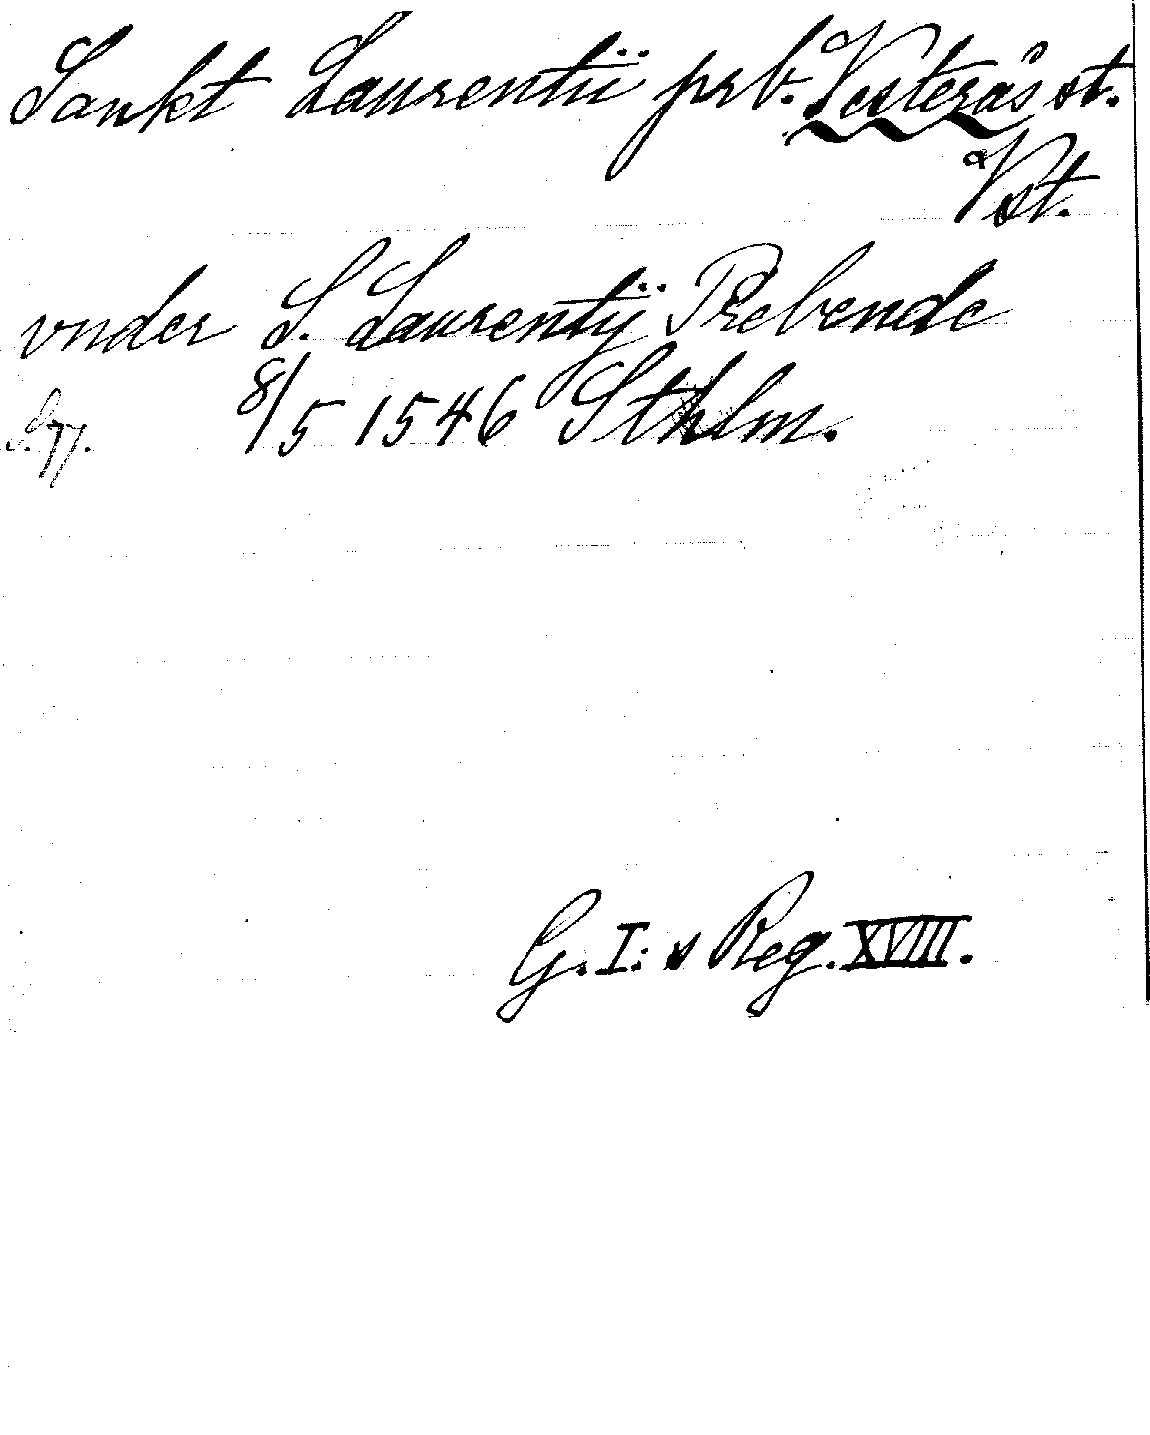 Sankt Laurentii prb. Vesterås st.
Vst.
vnder S. Laurentij Prebende
S. 77. 8/5 1546 Sthlm.
G. I: s Reg. XVIII.